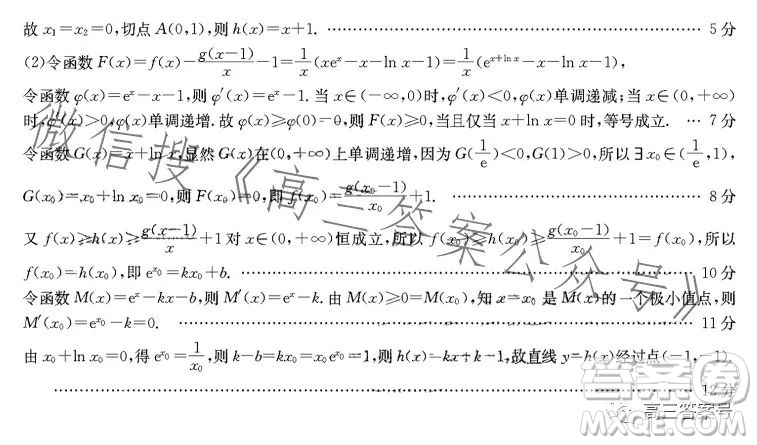 故 x₁=x₂=0,切点 A(0,1),则 h(x)=x+1. …… 5 分
(2)令函数 F(x)=f(x)-g(x-1)/x-1=1/x(xeˣ-x-ln x-1)=1/x(e^(x+ln x)-x-ln x-1),
令函数 φ(x)=eˣ-x-1,则 φ′(x)=eˣ-1.当 x∈(-∞,0)时,φ′(x)<0,φ(x)单调递减;当 x∈(0,+∞)
时,φ′(x)>0,φ(x)单调递增.故 φ(x)≥φ(0)=0,则 F(x)≥0,当且仅当 x+ln x=0 时,等号成立. … 7 分
令函数 G(x)=x+ln x,显然 G(x)在(0,+∞)上单调递增,因为 G(1/e)<0,G(1)>0,所以∃x₀∈(1/e,1),
G(x₀)=x₀+ln x₀=0,则 F(x₀)=0,即 f(x₀)=g(x₀-1)/x₀+1. …… 8 分
又 f(x)≥h(x)≥g(x-1)/x+1 对 x∈(0,+∞)恒成立,所以 f(x₀)≥h(x₀)≥g(x₀-1)/x₀+1=f(x₀),所以
f(x₀)=h(x₀),即 e^(x₀)=kx₀+b. …… 10 分
令函数 M(x)=eˣ-kx-b,则 M′(x)=eˣ-k.由 M(x)≥0=M(x₀),知 x=x₀ 是 M(x)的一个极小值点,则
M′(x₀)=e^(x₀)-k=0. …… 11 分
由 x₀+ln x₀=0,得 e^(x₀)=1/x₀,则 k-b=kx₀=x₀e^(x₀)=1,则 h(x)=kx+k-1,故直线 y=h(x)经过点(-1,-1).
…… 12 分
微信搜《高三答案公众号》
答案圈
高三答案号
MXQE.COM